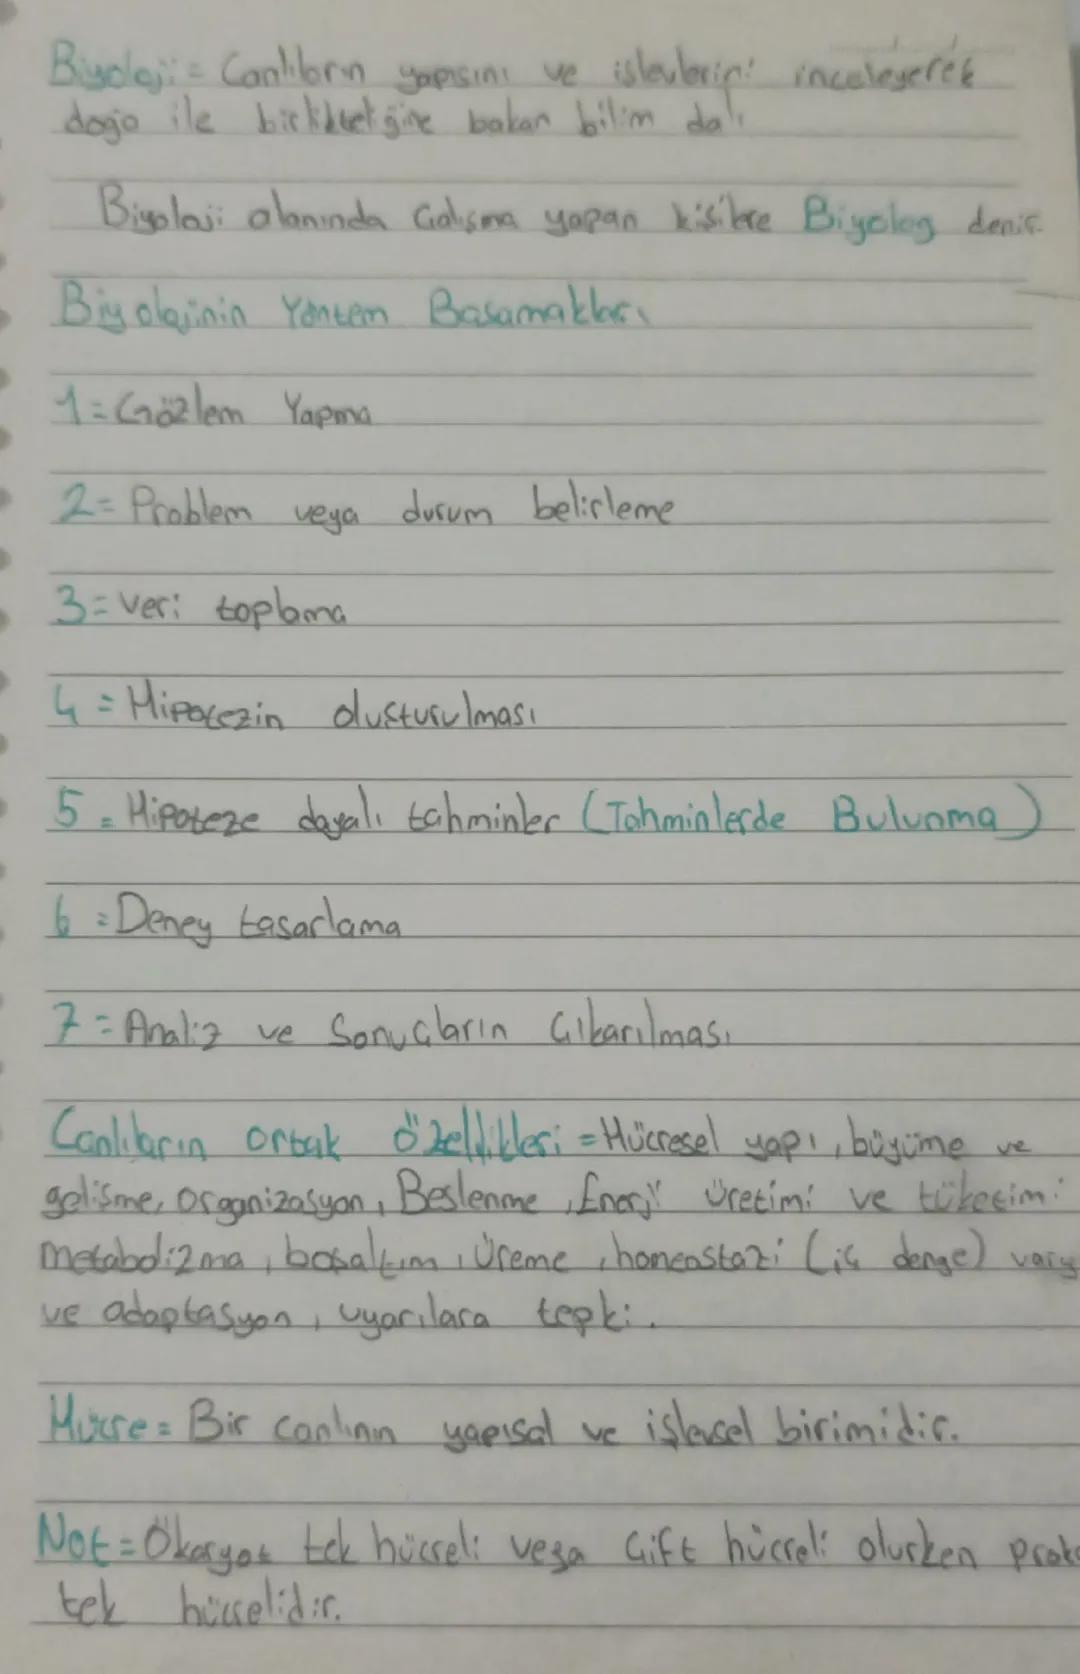 Biyoloji = Canlıların yapısını ve işlevlerini inceleyerek
doğa ile birlikteliğine bakan bilim dalı
Biyoloji alanında Çalışma yapan kişilere Biyolog denir.
Biyolojinin Yöntem Basamakları
1 = Gözlem Yapma
2 = Problem veya durum belirleme
3 = Veri toplama
4 = Hipotezin oluşturulması
5 = Hipoteze dayalı tahminler (Tahminlerde Bulunma)
6 = Deney tasarlama
7 = Analiz ve Sonuçların Çıkarılması
Canlıların ortak özellikleri = Hücresel yapı, büyüme ve
gelişme, organizasyon, Beslenme, Enerji üretimi ve tüketimi
metabolizma, boşaltım, üreme, homeostazi (iç denge) vary
ve adaptasyon, uyarılara tepki.
Hücre = Bir canlının yapısal ve işlevsel birimidir.
Not = Ökaryot tek hücreli veya Çift hücreli olurken prok
tek hücrelidir.